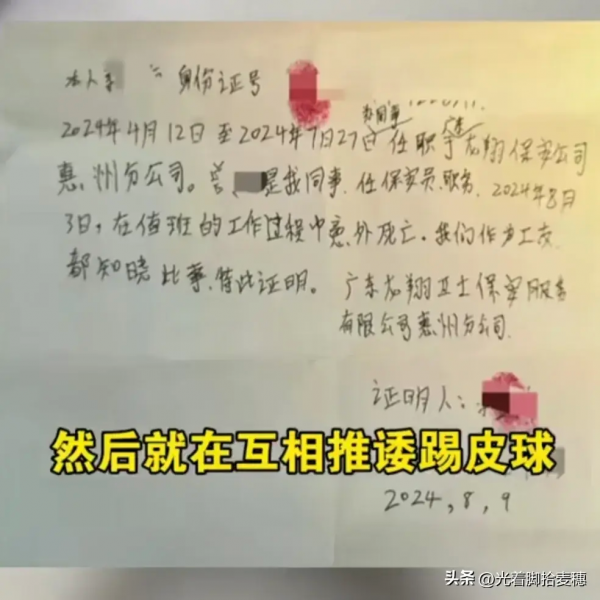 本人李 身份证号
2024年4月12日至2024年7月27日任职于龙翔保安公司
惠州分公司。曾 是我同事、任保安员、职务、2024年8月
3日,在值班的工作过程中意外死亡。我们作为工友
都知晓此事,特此证明。
广东龙翔卫士保安服务
有限公司惠州分公司
证明人:
然后就在互相推诿踢皮球
2024,8,9
头条 @光着脚拾麦穗